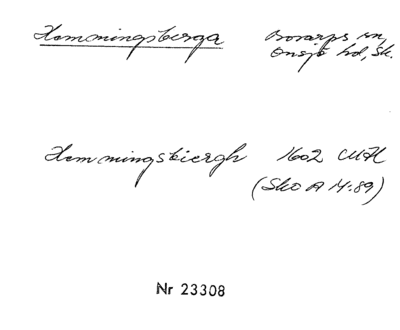 Hemmingsberga Bosarps sn,
Onsjö hd, Sk.
Hemmingsbiergh 1602
(Sko A 14:89)
Nr 23308